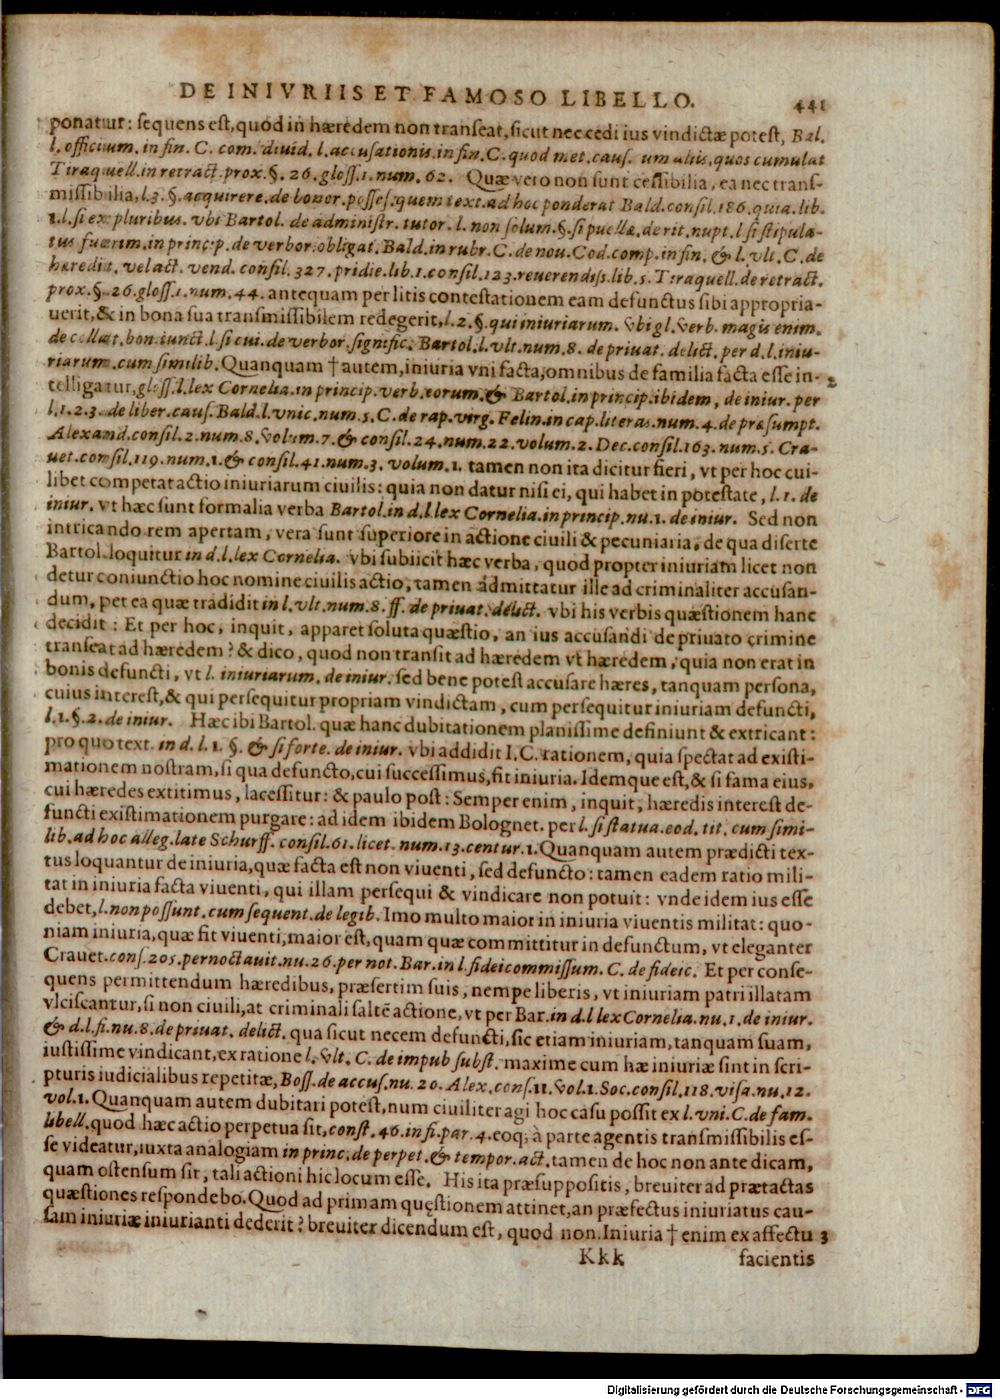 DE INIVRIIS ET FAMOSO LIBELLO. 441
ponatur: sequens est, quòd in hæredem non transeat, sicut nec cedi ius vindictæ potest, Bal.
l. officium. in fin. C. com. diuid. l. accusationis. in fin. C. quod met. caus. cum aliis, quos cumulat
Tiraquell. in retract. prox. §. 26. gloss. 1. num. 62. Quæ vero non sunt cessibilia, ea nec trans-
missibilia, l. 3. §. acquirere. de bonor. posses. quem text. ad hoc ponderat Bald. consil. 186. quia. lib.
1. l. si ex pluribus. vbi Bartol. de administr. tutor. l. non solum. §. si puellæ. de rit. nupt. l. si stipula-
tus fuerim. in princip. de verbor. obligat. Bald. in rubr. C. de nou. Cod. comp. in fin. & l. vlt. C. de
hæredit. vel act. vend. consil. 327. pridie. lib. 1. consil. 123. reuerendiss. lib. 5. Tiraquell. de retract.
prox. §. 26. gloss. 1. num. 44. antequam per litis contestationem eam defunctus sibi appropria-
uerit, & in bona sua transmissibilem redegerit, l. 2. §. qui iniuriarum. vbi gl. verb. magis enim.
de collat. bon. iunct. l. si cui. de verbor. signific. Bartol. l. vlt. num. 8. de priuat. delict. per d. l. iniu-
riarum. cum similib. Quanquam † autem, iniuria vni facta, omnibus de familia facta esse in- 2
telligatur, gloss. l. lex Cornelia. in princip. verb. eorum. & Bartol. in princip. ibidem, de iniur. per
l. 1. 2. 3. de liber. caus. Bald. l. vnic. num. 5. C. de rap. virg. Felin. in cap. literas. num. 4. de præsumpt.
Alexand. consil. 2. num. 8. volum. 7. & consil. 24. num. 22. volum. 2. Dec. consil. 163. num. 5. Cra-
uet. consil. 119. num. 1. & consil. 41. num. 3. volum. 1. tamen non ita dicitur fieri, vt per hoc cui-
libet competat actio iniuriarum ciuilis: quia non datur nisi ei, qui habet in potestate, l. 1. de
iniur. vt hæc sunt formalia verba Bartol. in d. l. lex Cornelia. in princip. nu. 1. de iniur. Sed non
intricando rem apertam, vera sunt superiore in actione ciuili & pecuniaria, de qua diserte
Bartol. loquitur in d. l. lex Cornelia. vbi subiicit hæc verba, quod propter iniuriam licet non
detur coniunctio hoc nomine ciuilis actio, tamen admittatur ille ad criminaliter accusan-
dum, per ea quæ tradidit in l. vlt. num. 8. ff. de priuat. delict. vbi his verbis quæstionem hanc
decidit: Et per hoc, inquit, apparet soluta quæstio, an ius accusandi de priuato crimine
transeat ad hæredem? & dico, quod non transit ad hæredem vt hæredem, quia non erat in
bonis defuncti, vt l. iniuriarum. de iniur. sed bene potest accusare hæres, tanquam persona,
cuius interest, & qui persequitur propriam vindictam, cum persequitur iniuriam defuncti,
l. 1. §. 2. de iniur. Hæc ibi Bartol. quæ hanc dubitationem planissime definiunt & extricant:
pro quo text. in d. l. 1. §. & si forte. de iniur. vbi addidit I. C. rationem, quia spectat ad existi-
mationem nostram, si qua defuncto, cui successimus, fit iniuria. Idemque est, & si fama eius,
cui hæredes extitimus, lacessitur: & paulo post: Semper enim, inquit, hæredis interest de-
functi existimationem purgare: ad idem ibidem Bolognet. per l. si statua. eod. tit. cum simi-
lib. ad hoc alleg. late Schurff. consil. 61. licet. num. 13. centur. 1. Quanquam autem prædicti tex-
tus loquantur de iniuria, quæ facta est non viuenti, sed defuncto: tamen eadem ratio mili-
tat in iniuria facta viuenti, qui illam persequi & vindicare non potuit: vnde idem ius esse
debet, l. non possunt. cum sequent. de legib. Imo multo maior in iniuria viuentis militat: quo-
niam iniuria, quæ fit viuenti, maior est, quam quæ committitur in defunctum, vt eleganter
Crauet. cons. 205. pernoctauit. nu. 26. per not. Bar. in l. fideicommissum. C. de fideic. Et per conse-
quens permittendum hæredibus, præsertim suis, nempe liberis, vt iniuriam patri illatam
vlciscantur, si non ciuili, at criminali saltē actione, vt per Bar. in d. l lex Cornelia. nu. 1. de iniur.
& d. l. fi. nu. 8. de priuat. delict. qua sicut necem defuncti, sic etiam iniuriam, tanquam suam,
iustissime vindicant, ex ratione l. vlt. C. de impub subst. maxime cum hæ iniuriæ sint in scri-
pturis iudicialibus repetitæ, Boss. de accus. nu. 20. Alex. cons. 11. vol. 1. Soc. consil. 118. visa. nu. 12.
vol. 1. Quanquam autem dubitari potest, num ciuiliter agi hoc casu possit ex l. vni. C. de fam.
libell. quod hæc actio perpetua sit, const. 46. in fi. par. 4. eoq; à parte agentis transmissibilis es-
se videatur, iuxta analogiam in princ. de perpet. & tempor. act. tamen de hoc non ante dicam,
quam ostensum sit, tali actioni hic locum esse. His ita præsuppositis, breuiter ad prætactas
quæstiones respondebo. Quod ad primam quęstionem attinet, an præfectus iniuriatus cau-
sam iniuriæ iniurianti dederit? breuiter dicendum est, quod non. Iniuria † enim ex affectu 3
Kkk facientis
Digitalisierung gefördert durch die Deutsche Forschungsgemeinschaft - DFG